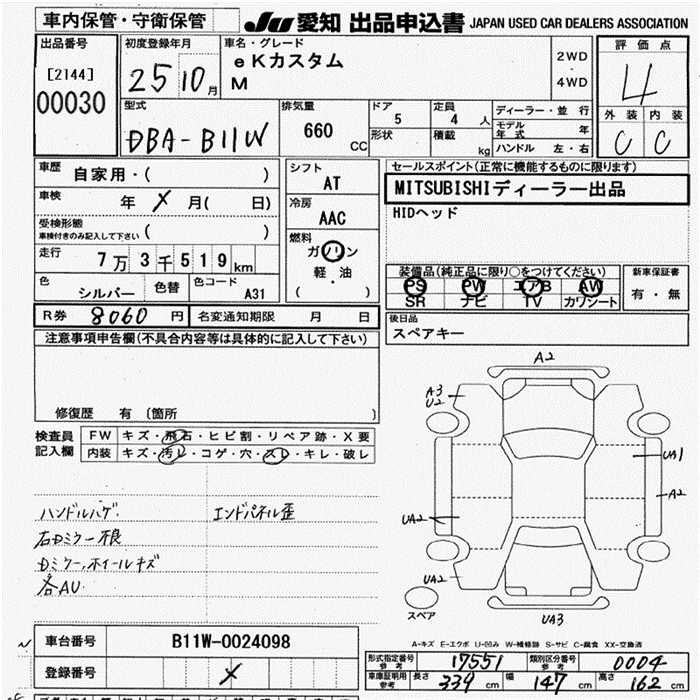 車内保管・守衛保管
JU 愛知 出品申込書 JAPAN USED CAR DEALERS ASSOCIATION
出品番号
[2144]
00030
初度登録年月
25 10月
車名・グレード
eKカスタム
M
2WD
・
4WD
評価点
4
外装 内装
C C
型式
DBA-B11W
排気量
660 CC
ドア 5
形状
定員 4 人
積載 kg
ディーラー・並行
モデル年式 年
ハンドル 左・右
車歴
自家用・( )
車検 年 X 月( 日)
受検形態
車検付きのみ記入して下さい ( )
走行
7万3千519km
色 シルバー 色替 色コード A31
シフト AT
冷房 AAC
燃料
ガソリン
軽・油
( )
セールスポイント(正常に機能するものに限ります)
MITSUBISHIディーラー出品
HIDヘッド
装備品(純正品に限り○をつけてください)
PS PW エアB AW
SR ナビ TV カワシート
新車保証書
有・無
R券 8060円 名変通知期限 月 日
後日品
スペアキー
注意事項申告欄(不具合内容等は具体的に記入して下さい)
修復歴 有 〔箇所 〕
検査員記入欄
FW キズ・飛石・ヒビ割・リペア跡・X要
内装 キズ・汚レ・コゲ・穴・スレ・キレ・破レ
ハンドルハゲ. エンドパネル歪
右Dミラー不良
Dミラー,ホイールキズ
各AU.
A2
A3
U2
UA1
A2
UA2
UA2
UA3
スペア
A-キズ E-エクボ U-凹み W-補修跡 S-サビ C-腐食 XX-交換済
車台番号 B11W-0024098
登録番号 X
形式指定番号 参考 17551 類別区分番号 参考 0004
車庫証明用 参考 長さ 339 cm 幅 147 cm 高さ 162 cm